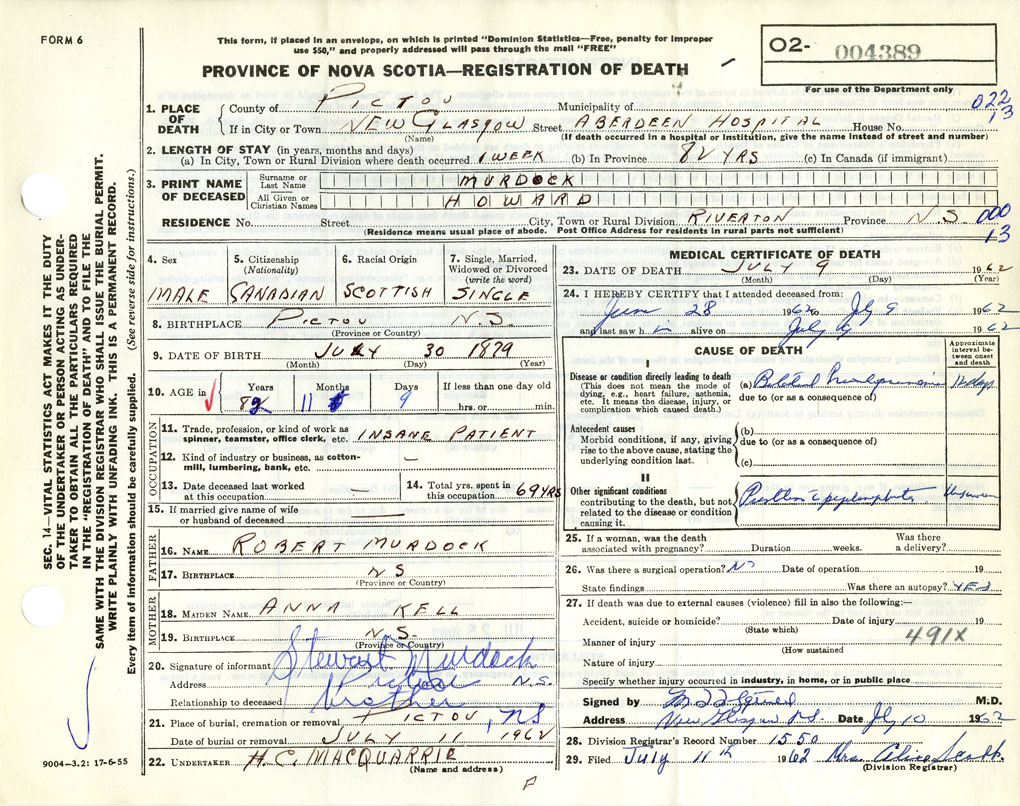 FORM 6
This form, if placed in an envelope, on which is printed "Dominion Statistics—Free, penalty for improper
use $50," and properly addressed will pass through the mail "FREE"
PROVINCE OF NOVA SCOTIA—REGISTRATION OF DEATH
O2- 004389
For use of the Department only
SEC. 14—VITAL STATISTICS ACT MAKES IT THE DUTY
OF THE UNDERTAKER OR PERSON ACTING AS UNDER-
TAKER TO OBTAIN ALL THE PARTICULARS REQUIRED
IN THE "REGISTRATION OF DEATH" AND TO FILE THE
SAME WITH THE DIVISION REGISTRAR WHO SHALL ISSUE THE BURIAL PERMIT.
WRITE PLAINLY WITH UNFADING INK. THIS IS A PERMANENT RECORD.
Every item of information should be carefully supplied. (See reverse side for instructions.)
1. PLACE OF DEATH
County of PICTOU Municipality of
022
13
If in City or Town NEW GLASGOW Street ABERDEEN HOSPITAL House No.
(Name) (If death occurred in a hospital or institution, give the name instead of street and number)
2. LENGTH OF STAY (in years, months and days)
(a) In City, Town or Rural Division where death occurred 1 WEEK (b) In Province 82 YRS (c) In Canada (if immigrant)
3. PRINT NAME OF DECEASED
Surname or Last Name MURDOCK
All Given or Christian Names HOWARD
RESIDENCE No. Street City, Town or Rural Division RIVERTON Province N.S. 000
13
(Residence means usual place of abode. Post Office Address for residents in rural parts not sufficient)
4. Sex
MALE
5. Citizenship
(Nationality)
CANADIAN
6. Racial Origin
SCOTTISH
7. Single, Married,
Widowed or Divorced
(write the word)
SINGLE
8. BIRTHPLACE PICTOU N.S.
(Province or Country)
9. DATE OF BIRTH JULY 30 1879
(Month) (Day) (Year)
10. AGE in Years Months Days If less than one day old
82 11 9 hrs. or min.
OCCUPATION
11. Trade, profession, or kind of work as
spinner, teamster, office clerk, etc. INSANE PATIENT
12. Kind of industry or business, as cotton-
mill, lumbering, bank, etc. —
13. Date deceased last worked
at this occupation —
14. Total yrs. spent in
this occupation 69 YRS
15. If married give name of wife
or husband of deceased
FATHER
16. NAME ROBERT MURDOCK
17. BIRTHPLACE NS
(Province or Country)
MOTHER
18. MAIDEN NAME ANNA KELL
19. BIRTHPLACE N.S.
(Province or Country)
20. Signature of informant Stewart Murdock
Address Pictou N.S.
Relationship to deceased brother
21. Place of burial, cremation or removal PICTOU, NS
Date of burial or removal JULY 11 1962
22. UNDERTAKER H.C. MACQUARRIE
(Name and address)
9004–3.2: 17-6-55
MEDICAL CERTIFICATE OF DEATH
23. DATE OF DEATH JULY 9 1962
(Month) (Day) (Year)
24. I HEREBY CERTIFY that I attended deceased from:
June 28 1962 to Jly 9 1962
and last saw h im alive on July 9 1962
CAUSE OF DEATH
Approximate
interval be-
tween onset
and death
I
Disease or condition directly leading to death
(This does not mean the mode of
dying, e.g., heart failure, asthenia,
etc. It means the disease, injury, or
complication which caused death.)
(a) Bilateral Bronchopneumonia 12 days
due to (or as a consequence of)
Antecedent causes
Morbid conditions, if any, giving
rise to the above cause, stating the
underlying condition last.
(b)
due to (or as a consequence of)
(c)
II
Other significant conditions
contributing to the death, but not
related to the disease or condition
causing it.
Unknown
25. If a woman, was the death
associated with pregnancy? Duration weeks. Was there
a delivery?
26. Was there a surgical operation? NO Date of operation 19
State findings Was there an autopsy? YES
27. If death was due to external causes (violence) fill in also the following:—
Accident, suicide or homicide? Date of injury 19
(State which)
491X
Manner of injury
(How sustained
Nature of injury
Specify whether injury occurred in industry, in home, or in public place
Signed by M.D.
Address New Glasgow N.S. Date Jly 10 1962
28. Division Registrar's Record Number 1550
29. Filed July 11th 1962 Mrs. Alice
(Division Registrar)